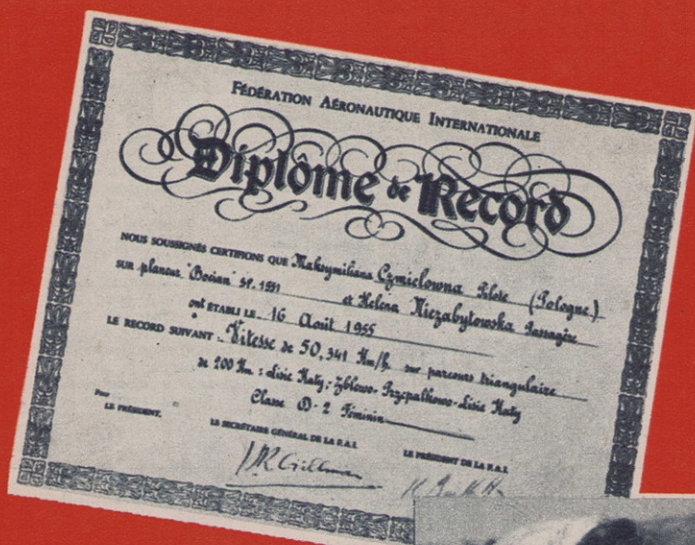 FÉDÉRATION AÉRONAUTIQUE INTERNATIONALE
Diplôme de Record
NOUS SOUSSIGNÉS CERTIFIONS QUE Maksymiliana Czmielowna Pilote (Pologne)
sur planeur "Bocian" SP. 1551 et Helena Niezabytowska Passagère
ont ÉTABLI LE 16 Août 1955
LE RECORD SUIVANT Vitesse de 50,341 Km/h sur parcours triangulaire
de 200 Km : Lisie Katy; Zblewo-Przepalkowo-Lisie Katy
Classe D-2 Féminin
Pour
LE PRÉSIDENT. LE SECRÉTAIRE GÉNÉRAL DE LA F.A.I. LE PRÉSIDENT DE LA F.A.I.